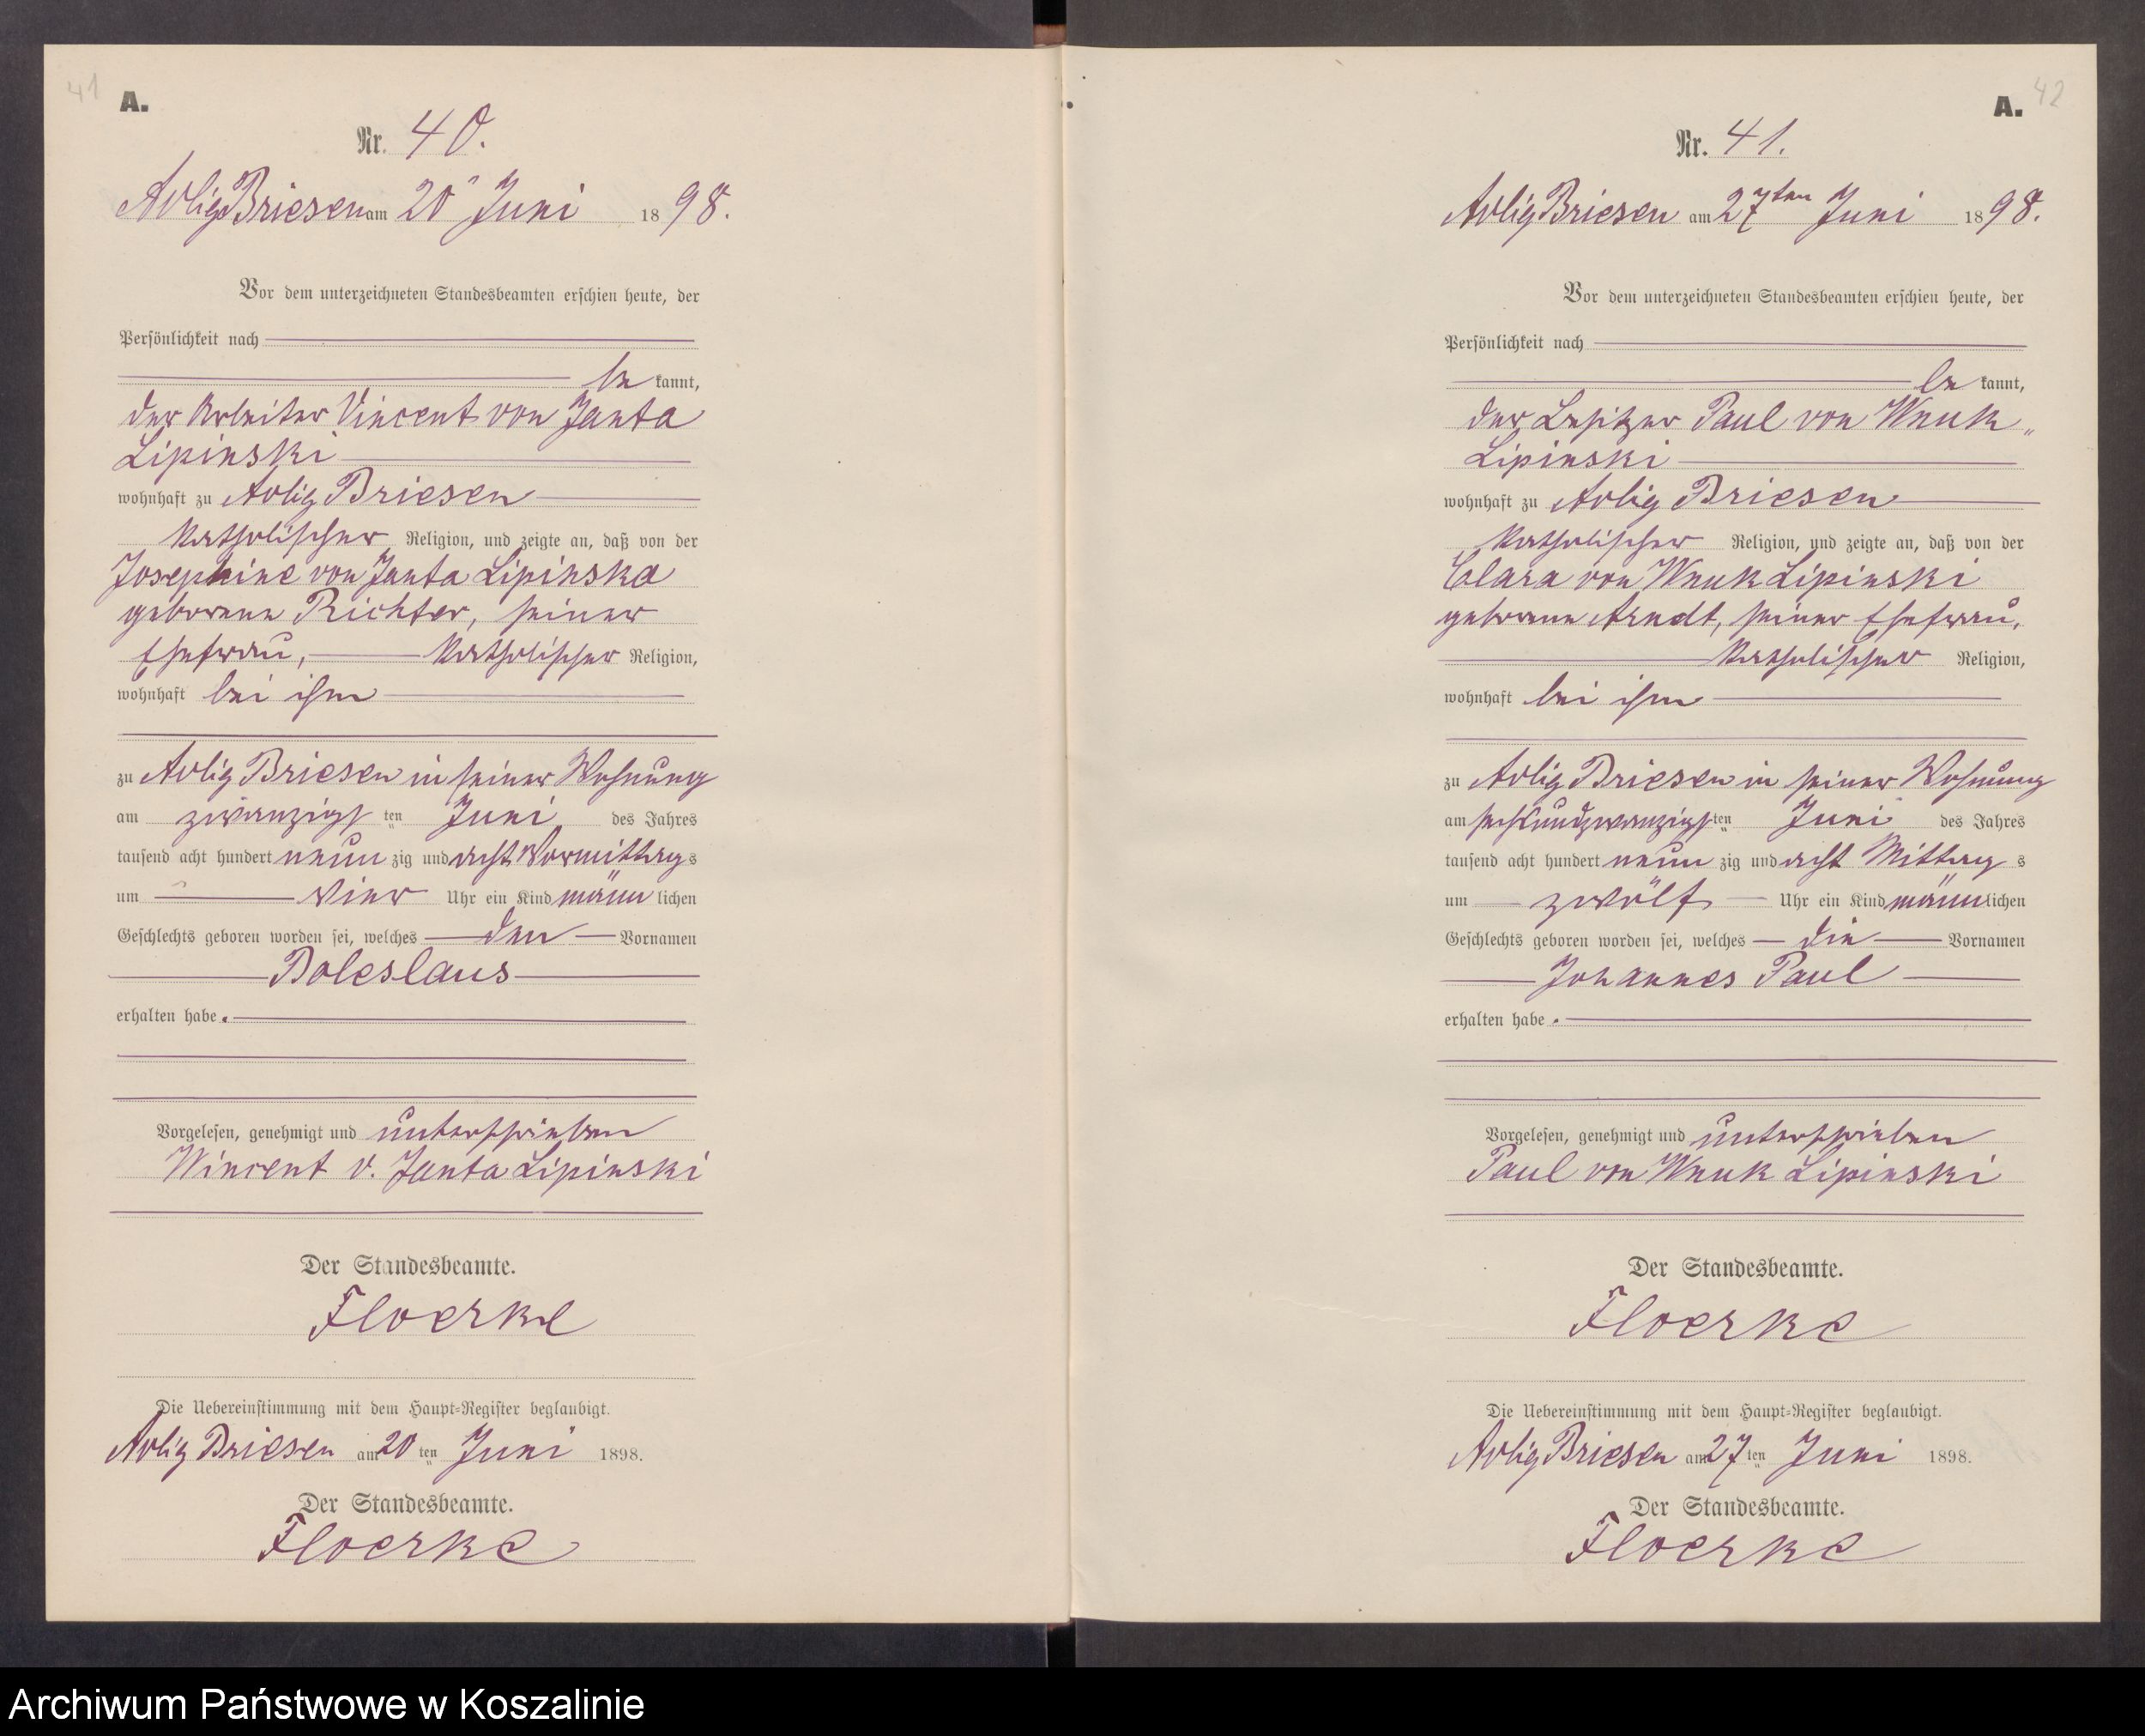 41
A.
Nr. 40.
Adlig Briesen am 20ᵗ Juni 1898.
Vor dem unterzeichneten Standesbeamten erschien heute, der
Persönlichkeit nach
be kannt,
der Arbeiter Vincent von Janta
Lipinski
wohnhaft zu Adlig Briesen
katholischer Religion, und zeigte an, daß von der
Josephine von Janta Lipinska
geborene Richter, seiner
Ehefrau, katholischer Religion,
wohnhaft bei ihm
zu Adlig Briesen in seiner Wohnung
am zwanzigs ten Juni des Jahres
tausend acht hundert neun zig und acht Vormittags
um vier Uhr ein Kind männ lichen
Geschlechts geboren worden sei, welches den Vornamen
Boleslaus
erhalten habe.
Vorgelesen, genehmigt und unterschrieben
Wincent v. Janta Lipinski
Der Standesbeamte.
Floerke
Die Uebereinstimmung mit dem Haupt-Register beglaubigt.
Adlig Briesen am 20 ten Juni 1898.
Der Standesbeamte.
Floerke
42
A.
Nr. 41.
Adlig Briesen am 27ten Juni 1898.
Vor dem unterzeichneten Standesbeamten erschien heute, der
Persönlichkeit nach
be kannt,
der Besitzer Paul von Wnuk„
Lipinski
wohnhaft zu Adlig Briesen
katholischer Religion, und zeigte an, daß von der
Clara von Wnuk Lipinski
geborene Arndt, seiner Ehefrau,
katholischer Religion,
wohnhaft bei ihm
zu Adlig Briesen in seiner Wohnung
am sechsundzwanzigs ten Juni des Jahres
tausend acht hundert neun zig und acht Mittag s
um zwölf Uhr ein Kind männ lichen
Geschlechts geboren worden sei, welches die Vornamen
Johannes Paul
erhalten habe.
Vorgelesen, genehmigt und unterschrieben
Paul von Wnuk Lipinski
Der Standesbeamte.
Floerke
Die Uebereinstimmung mit dem Haupt-Register beglaubigt.
Adlig Briesen am 27 ten Juni 1898.
Der Standesbeamte.
Floerke
Archiwum Państwowe w Koszalinie